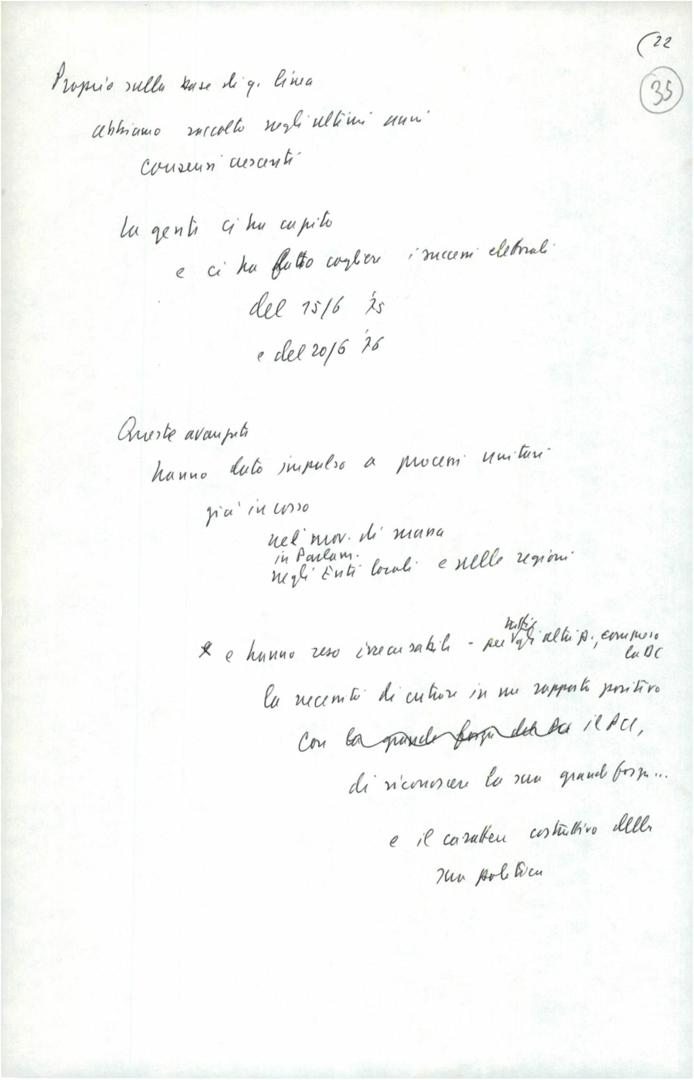 (22
35
Proprio sulla base di q. linea
abbiamo raccolto negli ultimi anni
consensi crescenti
La gente ci ha capito
e ci ha fatto cogliere i successi elettorali
del 15/6 '75
e del 20/6 '76
Queste avanzate
hanno dato impulso a processi unitari
già in corso
nel mov. di massa
in Parlam.
negli Enti locali e nelle regioni
* e hanno reso irrecusabile - per tutti gli altri p., compresa
la DC
la necessità di entrare in un rapporto positivo
con la grande forza del PCI il PCI,
di riconoscere la sua grande forza...
e il carattere costruttivo della
sua politica